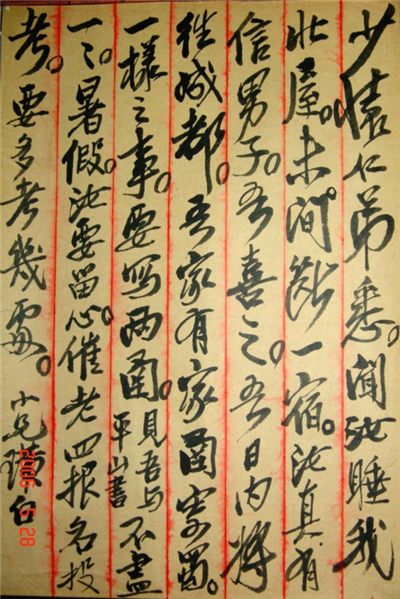 少懷仁弟悉。聞汝睡我
北屋。未间斷一宿。汝真有
信男子。吾喜之。吾日内将
往成都。吾家有家圖寄蜀。
一樣之事。要寫兩圖。見吾与平山書不盡
一一。暑假。汝要留心催老四报名投
考。要多考幾處。小兄璜白
2006 5 28